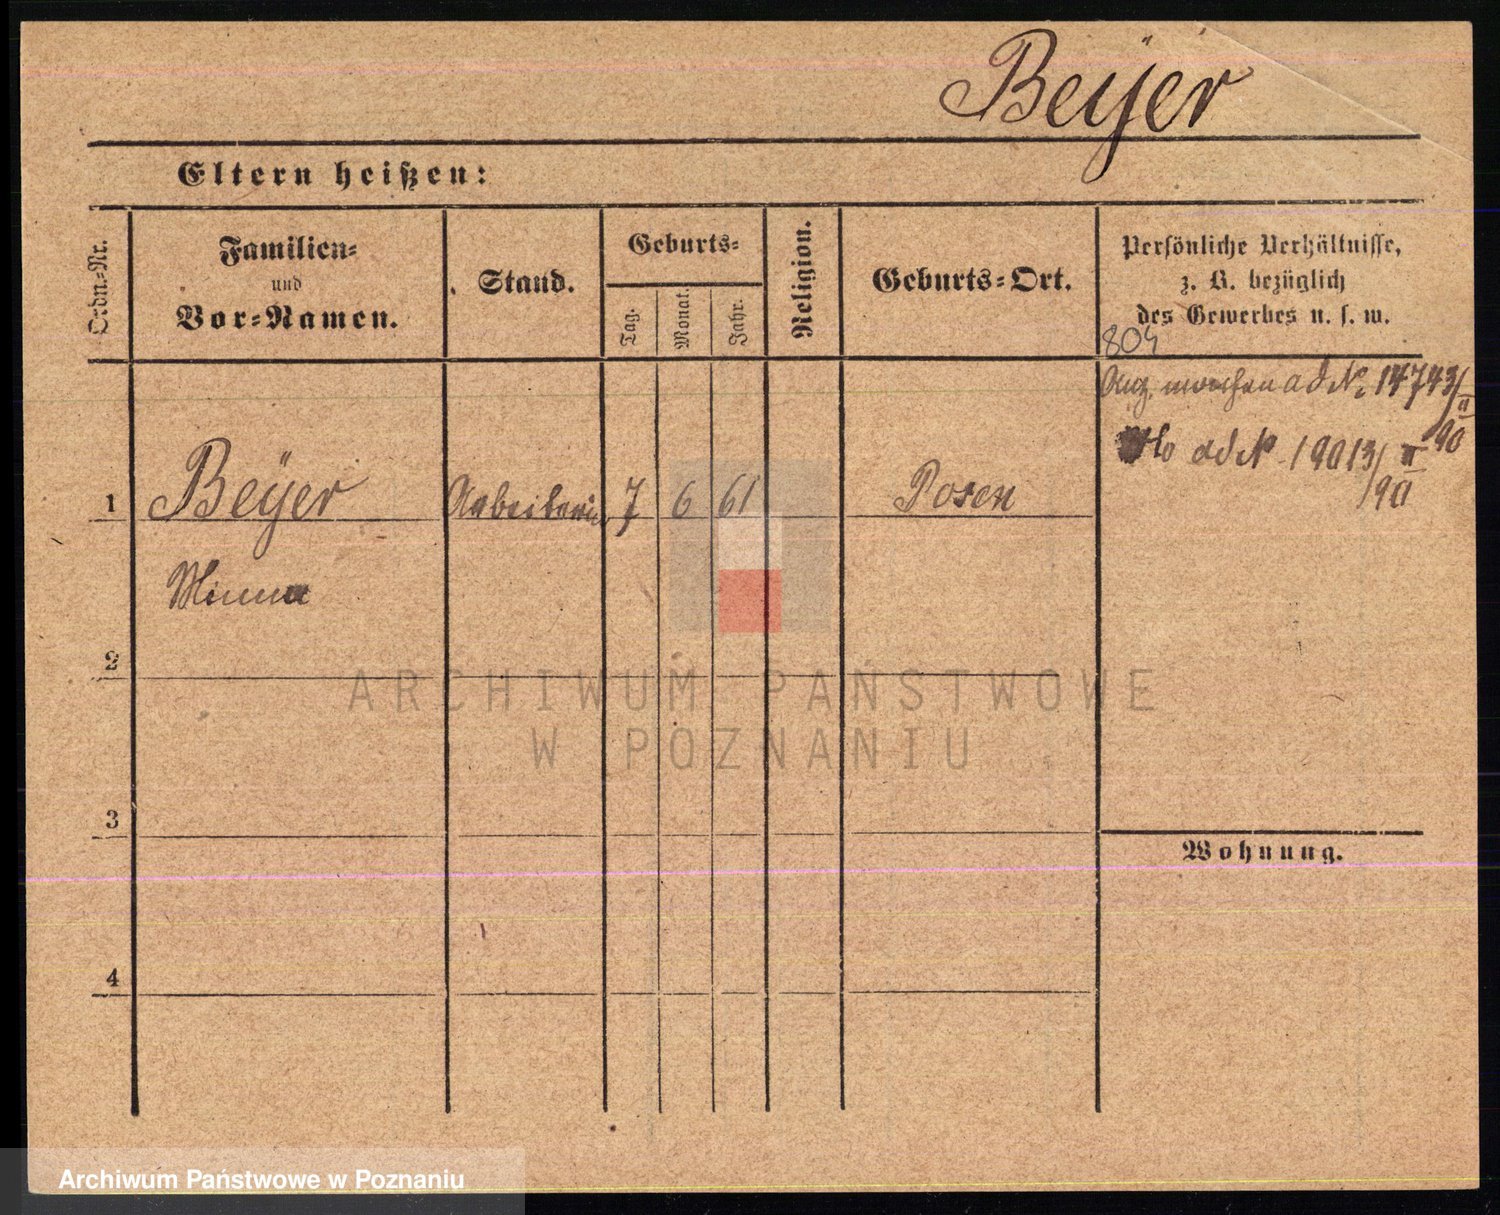 Beÿer
Eltern heißen:
Ordn.-Nr.
Familien-
und
Vor-Namen.
Stand.
Geburts-
Tag.
Monat.
Jahr.
Religion.
Geburts-Ort.
Persönliche Verhältnisse,
z. B. bezüglich
des Gewerbes u. s. w.
804
ad No 14743/II
90
ad No 19013/II
90
1 Beÿer Arbeiterin 7 6 61 Posen
Minna
2
3
4
Wohnung.
ARCHIWUM PAŃSTWOWE
W POZNANIU
Archiwum Państwowe w Poznaniu